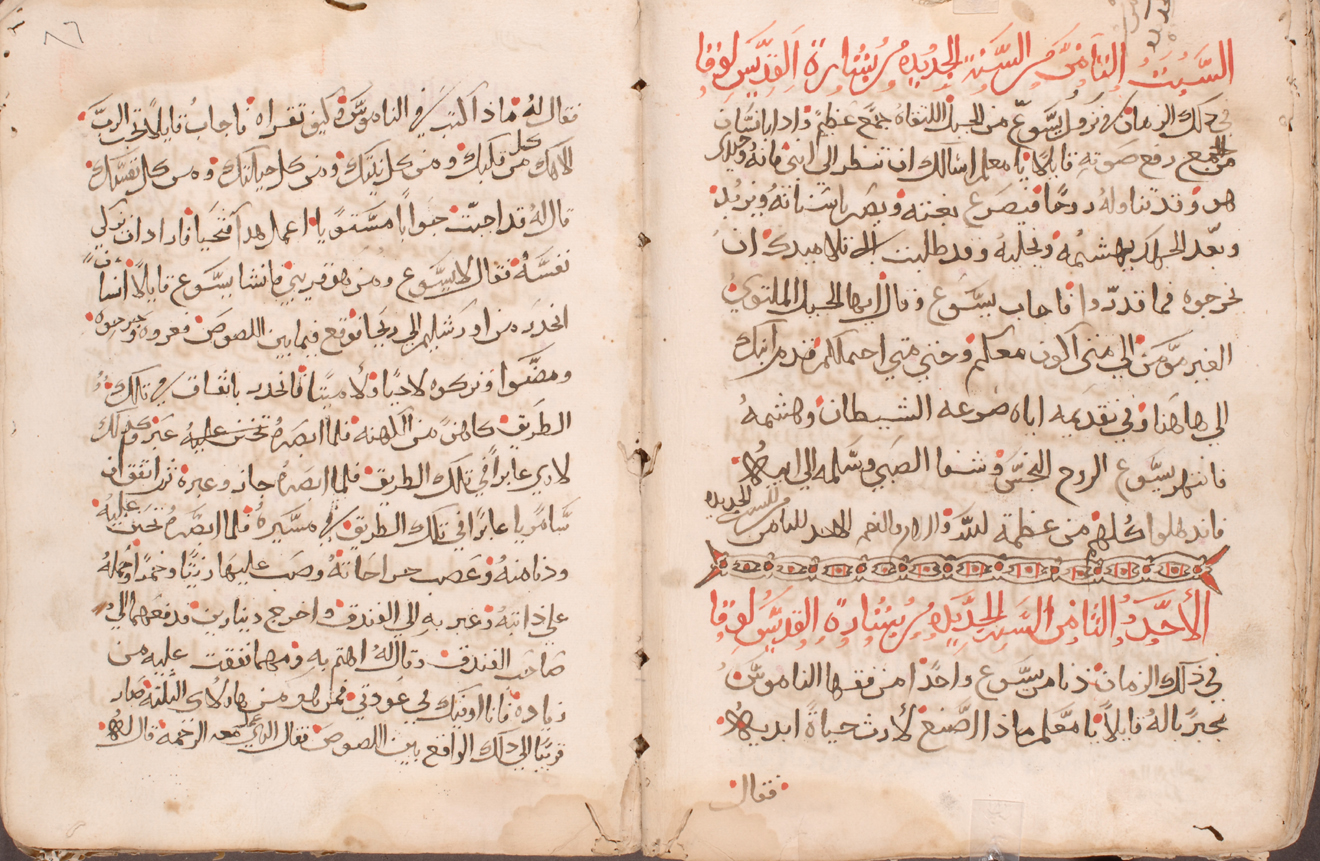 السبت الثامن من السنة الجديده من بشارة القديس لوقا
في ذلك الزمان في نزول يسوع من الجبل التقاه جمع عظيم واذا بانسان
من الجمع رفع صوته قايلا يا معلم اسالك ان تنظر الى ابني فانه وحيدي
هو وقد تناوله روحا فيصرع بغتة ويصر باسنانه ويزبد
وبعد الجهد يهشمه ويخليه وقد طلبت الى تلاميدك ان
يخرجوه فما قدروا فاجاب يسوع وقال ايها الجيل الملتوي
الغير مومن الى متى اكون معكم وحتى متى احتملكم قدم ابنك
الي هاهنا وفي تقديمه اياه صرعه الشيطان وهشمه
فانتهر يسوع الروح النجس وشفا الصبي وسلمه الى ابيه
فاندهلوا كلهم من عظمة لله الاحد الثامن
من السنه الجديده
الأحد الثامن السنه الجديده من بشارة القديس لوقا
في ذلك الزمان دنا من يسوع واحدا من فقها الناموس
مجربا له قايلا يا معلم ماذا اصنع لأرث حياة ابديه
فقال
٨٦
فقال له ماذا اكتب في الناموس وكيف تقراه فاجاب قايلا تحب الرب
الاهك من كل قلبك ومن كل نيتك ومن كل حياتك ومن كل نفسك
قال له قد اجبت جوابا مستويا اعمل هدا فتحيا فاراد ان يزكي
نفسه فقال ليسوع ومن هو قريبي فانشا يسوع قايلا انسان
انحدر من اورشليم الى ريحا فوقع فيما بين اللصوص فعروه وجرحوه
ومضوا وتركوه لا حيا ولا ميتا فانحدر باتفاق في تلك
الطريق كاهن من الكهنه فلما ابصره تحنن عليه عبر وكدلك
لاوي عابرا في تلك الطريق فلما ابصره جاز وعبره ثم اتفق ان
سامريا عابرا في تلك الطريق في مسيره فلما ابصره تحنن عليه
ودنا منه وعصب جراحاته وصب عليها زيتا وخمرا وحمله
على دابته وعبر به الى الفندق واخرج دينارين فدفعهما الى
صاحب الفندق وقال له اهتم به ومهما نفقت عليه من
زياده فانا اوفيك في عودتي فمن هو من هاولاى التلته صار
قريبا الى دلك الواقع بين اللصوص فقال الذي عمل معه الرحمه قال له